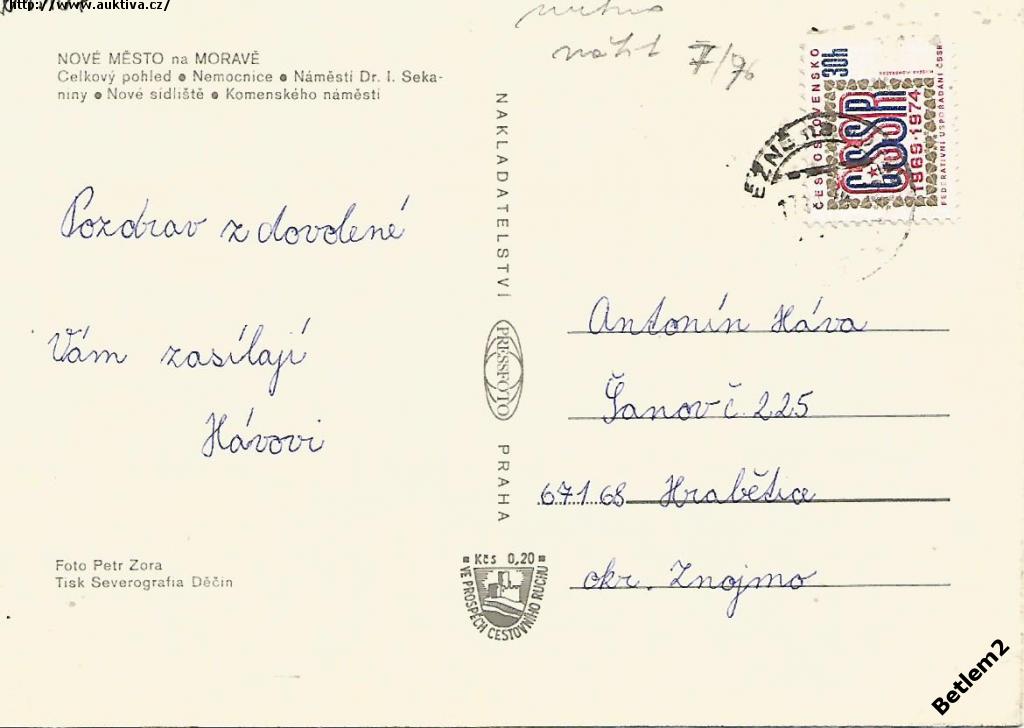 http://www.auktiva.cz/
NOVÉ MĚSTO na MORAVĚ
Celkový pohled ● Nemocnice ● Náměstí Dr. I. Seka-
niny ● Nové sídliště ● Komenského náměstí
Pozdrav z dovolené
Vám zasílají
Hávovi
Foto Petr Zora
Tisk Severografia Děčín
NAKLADATELSTVÍ
PRESSFOTO
PRAHA
Kčs 0,20
VE PROSPĚCH CESTOVNÍHO RUCHU
V/76
ČESKOSLOVENSKO
30h
ČSSR
1969-1974
FEDERATIVNÍ USPOŘÁDÁNÍ ČSSR
Antonín Háva
Šanov č. 225
671 68 Hrabětice
okr. Znojmo
Betlem2